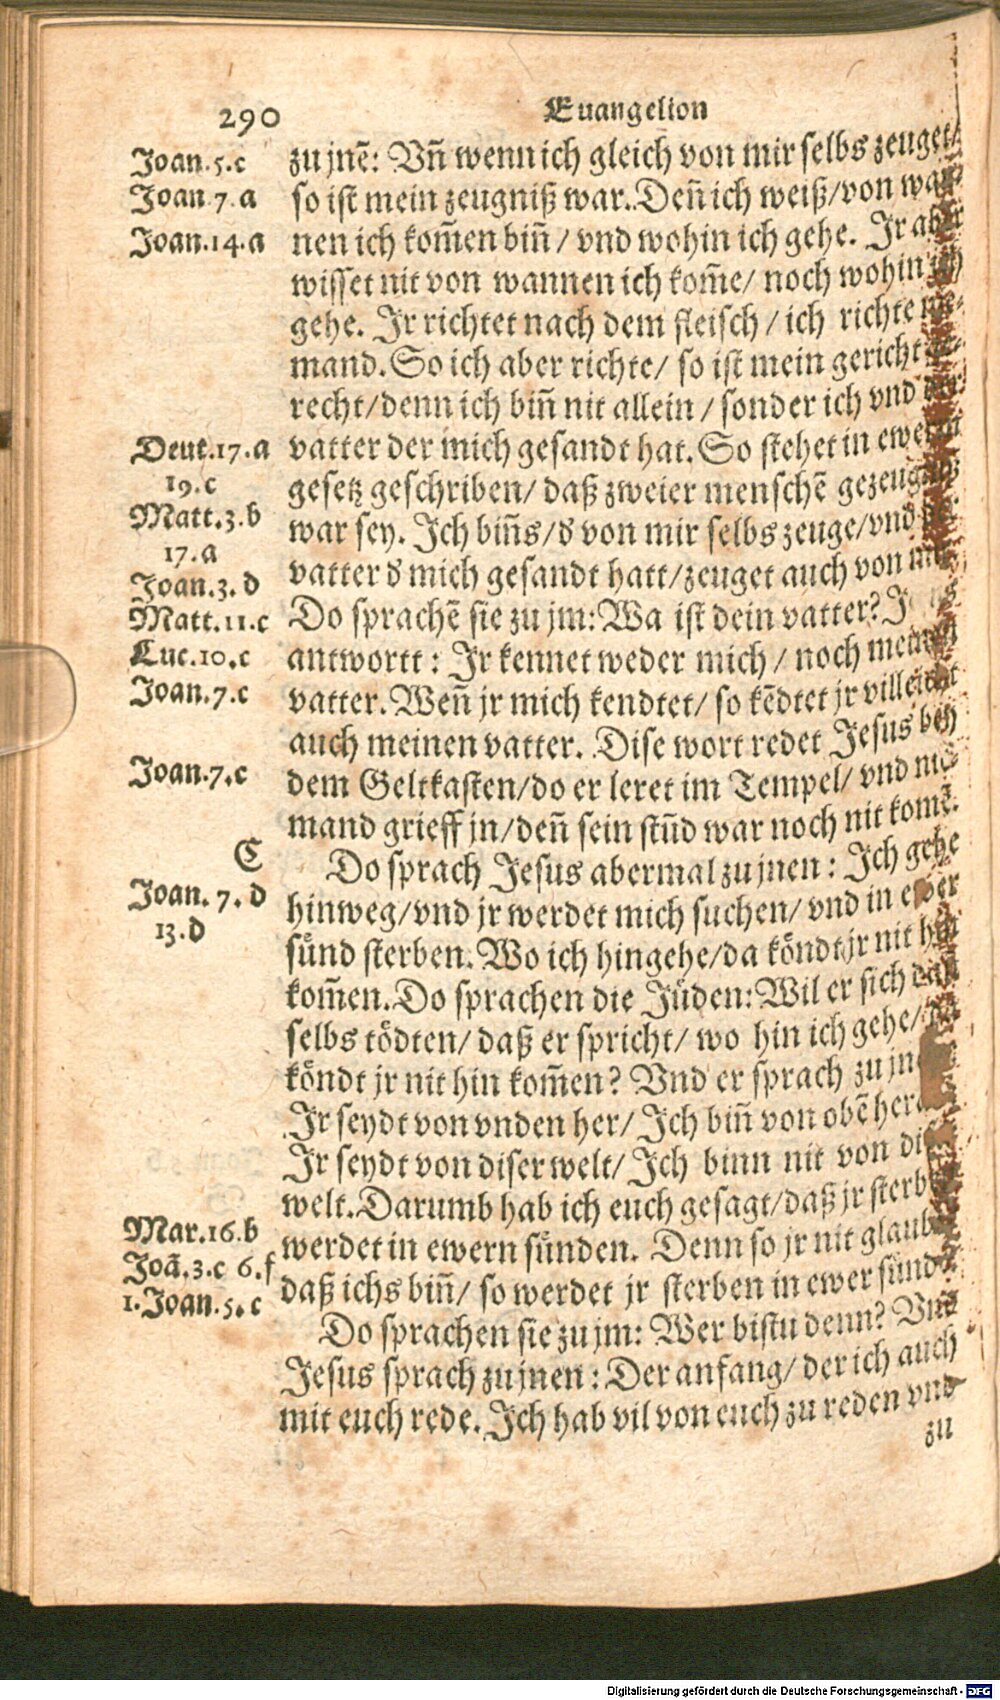 290
Euangelion
Joan.5.c
Joan 7 a
Joan.14.a
Deut.17.a
19.c
Matt.3.b
17.a
Joan.3.d
Matt.11.c
Luc.10.c
Joan.7.c
Joan.7.c
C
Joan.7.d
13.d
Mar.16.b
Joã.3.c 6.f
1.Joan.5.c
zu jnẽ: Vñ wenn ich gleich von mir selbs zeuget/
so ist mein zeugniß war. Deñ ich weiß/ von
nen ich kom̃en biñ / vnd wohin ich gehe. Ir
wisset nit von wannen ich kom̃e/ noch wohin
gehe. Ir richtet nach dem fleisch / ich richte
mand. So ich aber richte/ so ist mein gericht
recht/ denn ich biñ nit allein / sonder ich vnd
vatter der mich gesandt hat. So stehet in
gesetz geschriben/ daß zweier menschẽ
war sey. Ich biñs/ đ von mir selbs zeuge/ vnd
vatter đ mich gesandt hatt/ zeuget auch von
Do sprachẽ sie zu jm: Wa ist dein vatter?
antwortt : Ir kennet weder mich / noch
vatter. Weñ jr mich kendtet/ so kẽdtet jr villeicht
auch meinen vatter. Dise wort redet Jesus bey
dem Geltkasten/ do er leret im Tempel/ vnd
mand grieff jn/ deñ sein stũd war noch nit komẽ.
Do sprach Jesus abermal zu jnen : Ich gehe
hinweg/ vnd jr werdet mich suchen/ vnd in
sünd sterben. Wo ich hingehe/ da köndt jr nit
kom̃en. Do sprachen die Jüden: Wil er sich
selbs tödten/ daß er spricht/ wo hin ich gehe/
köndt jr nit hin kom̃en? Vnd er sprach zu
Ir seydt von vnden her/ Ich biñ von obẽ
Ir seydt von diser welt/ Ich binn nit von
welt. Darumb hab ich euch gesagt/ daß jr
werdet in ewern sünden. Denn so jr nit
daß ichs biñ/ so werdet jr sterben in ewer
Do sprachen sie zu jm: Wer bistu denn? Vnd
Jesus sprach zu jnen : Der anfang/ der ich auch
mit euch rede. Ich hab vil von euch zu reden vnd
zu
Digitalisierung gefördert durch die Deutsche Forschungsgemeinschaft - DFG